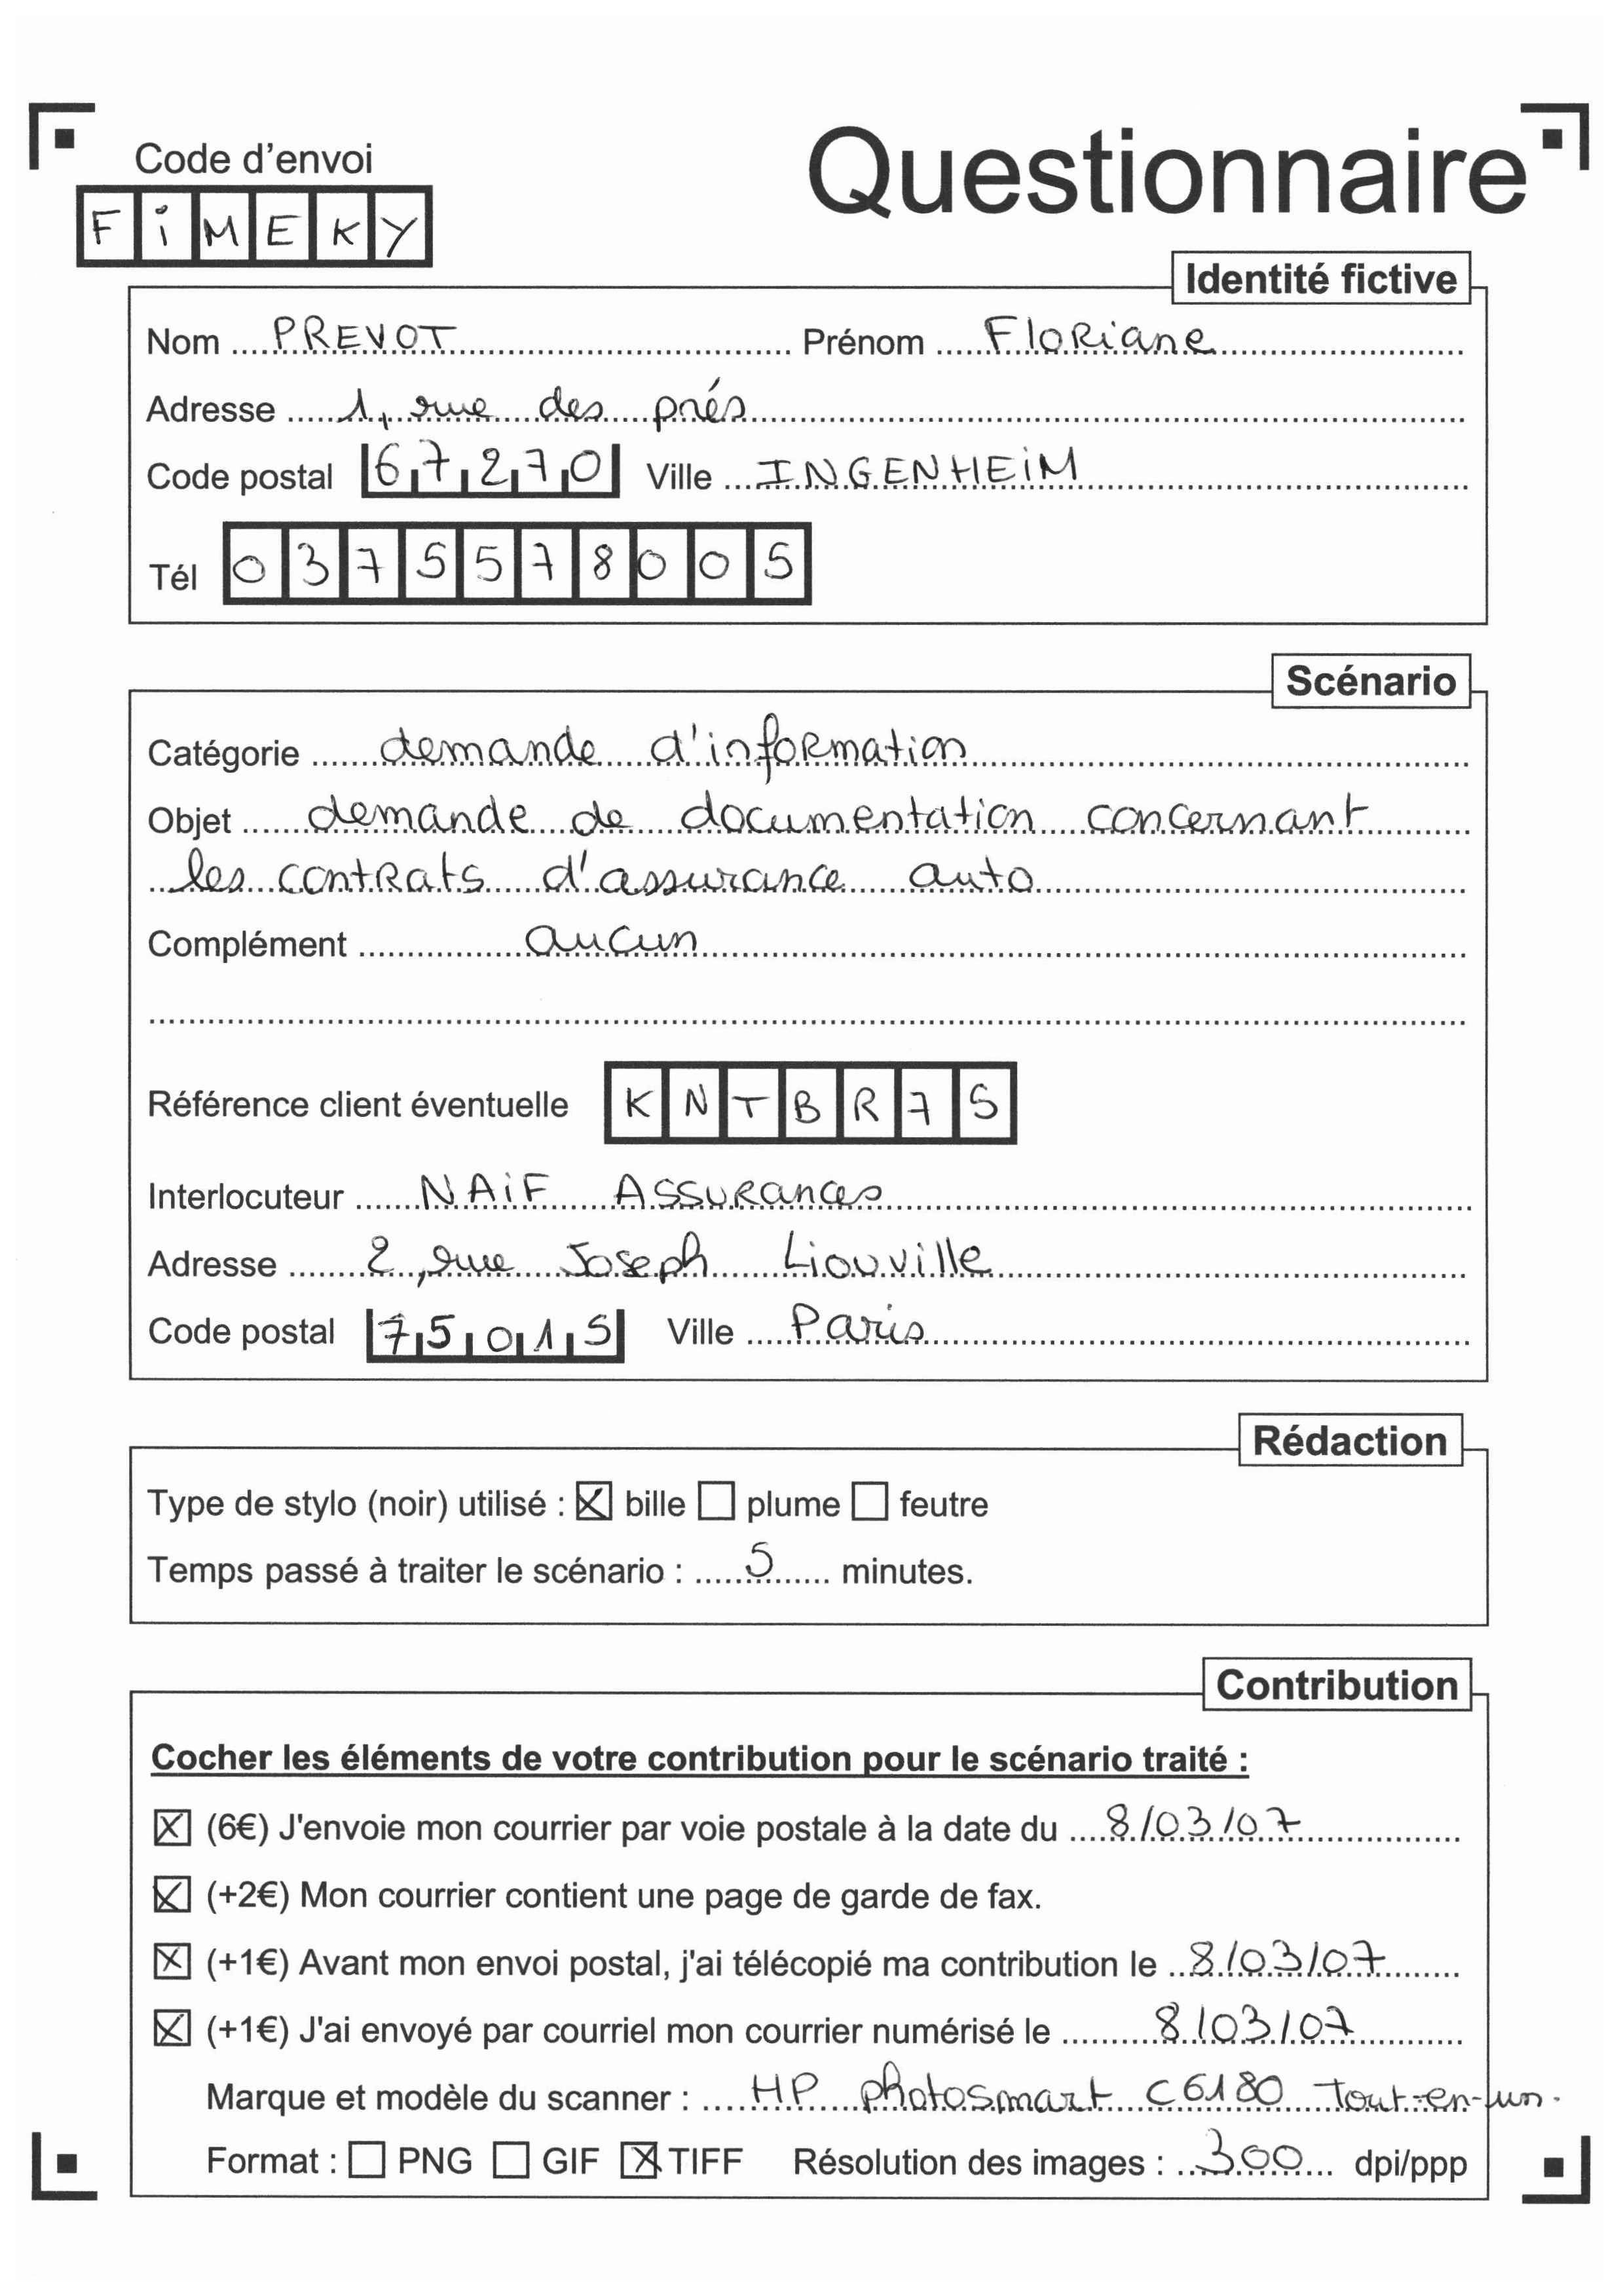 Code d'envoi
Questionnaire
FiMEKY
Identité fictive
Nom PREVOT Prénom Floriane
Adresse 1, rue des prés
Code postal 67270 Ville INGENHEiM
Tél 0375578005
Scénario
Catégorie demande d'information
Objet demande de documentation concernant
les contrats d'assurance auto
Complément aucun
Référence client éventuelle KNTBR75
Interlocuteur NAiF Assurances
Adresse 2, rue Joseph Liouville
Code postal 75015 Ville Paris
Rédaction
Type de stylo (noir) utilisé : ☒ bille ☐ plume ☐ feutre
Temps passé à traiter le scénario : 5 minutes.
Contribution
Cocher les éléments de votre contribution pour le scénario traité :
☒ (6€) J'envoie mon courrier par voie postale à la date du 8/03/07
☒ (+2€) Mon courrier contient une page de garde de fax.
☒ (+1€) Avant mon envoi postal, j'ai télécopié ma contribution le 8/03/07
☒ (+1€) J'ai envoyé par courriel mon courrier numérisé le 8/03/07
Marque et modèle du scanner : HP photosmart C6180 Tout-en-un.
Format : ☐ PNG ☐ GIF ☒ TIFF Résolution des images : 300 dpi/ppp